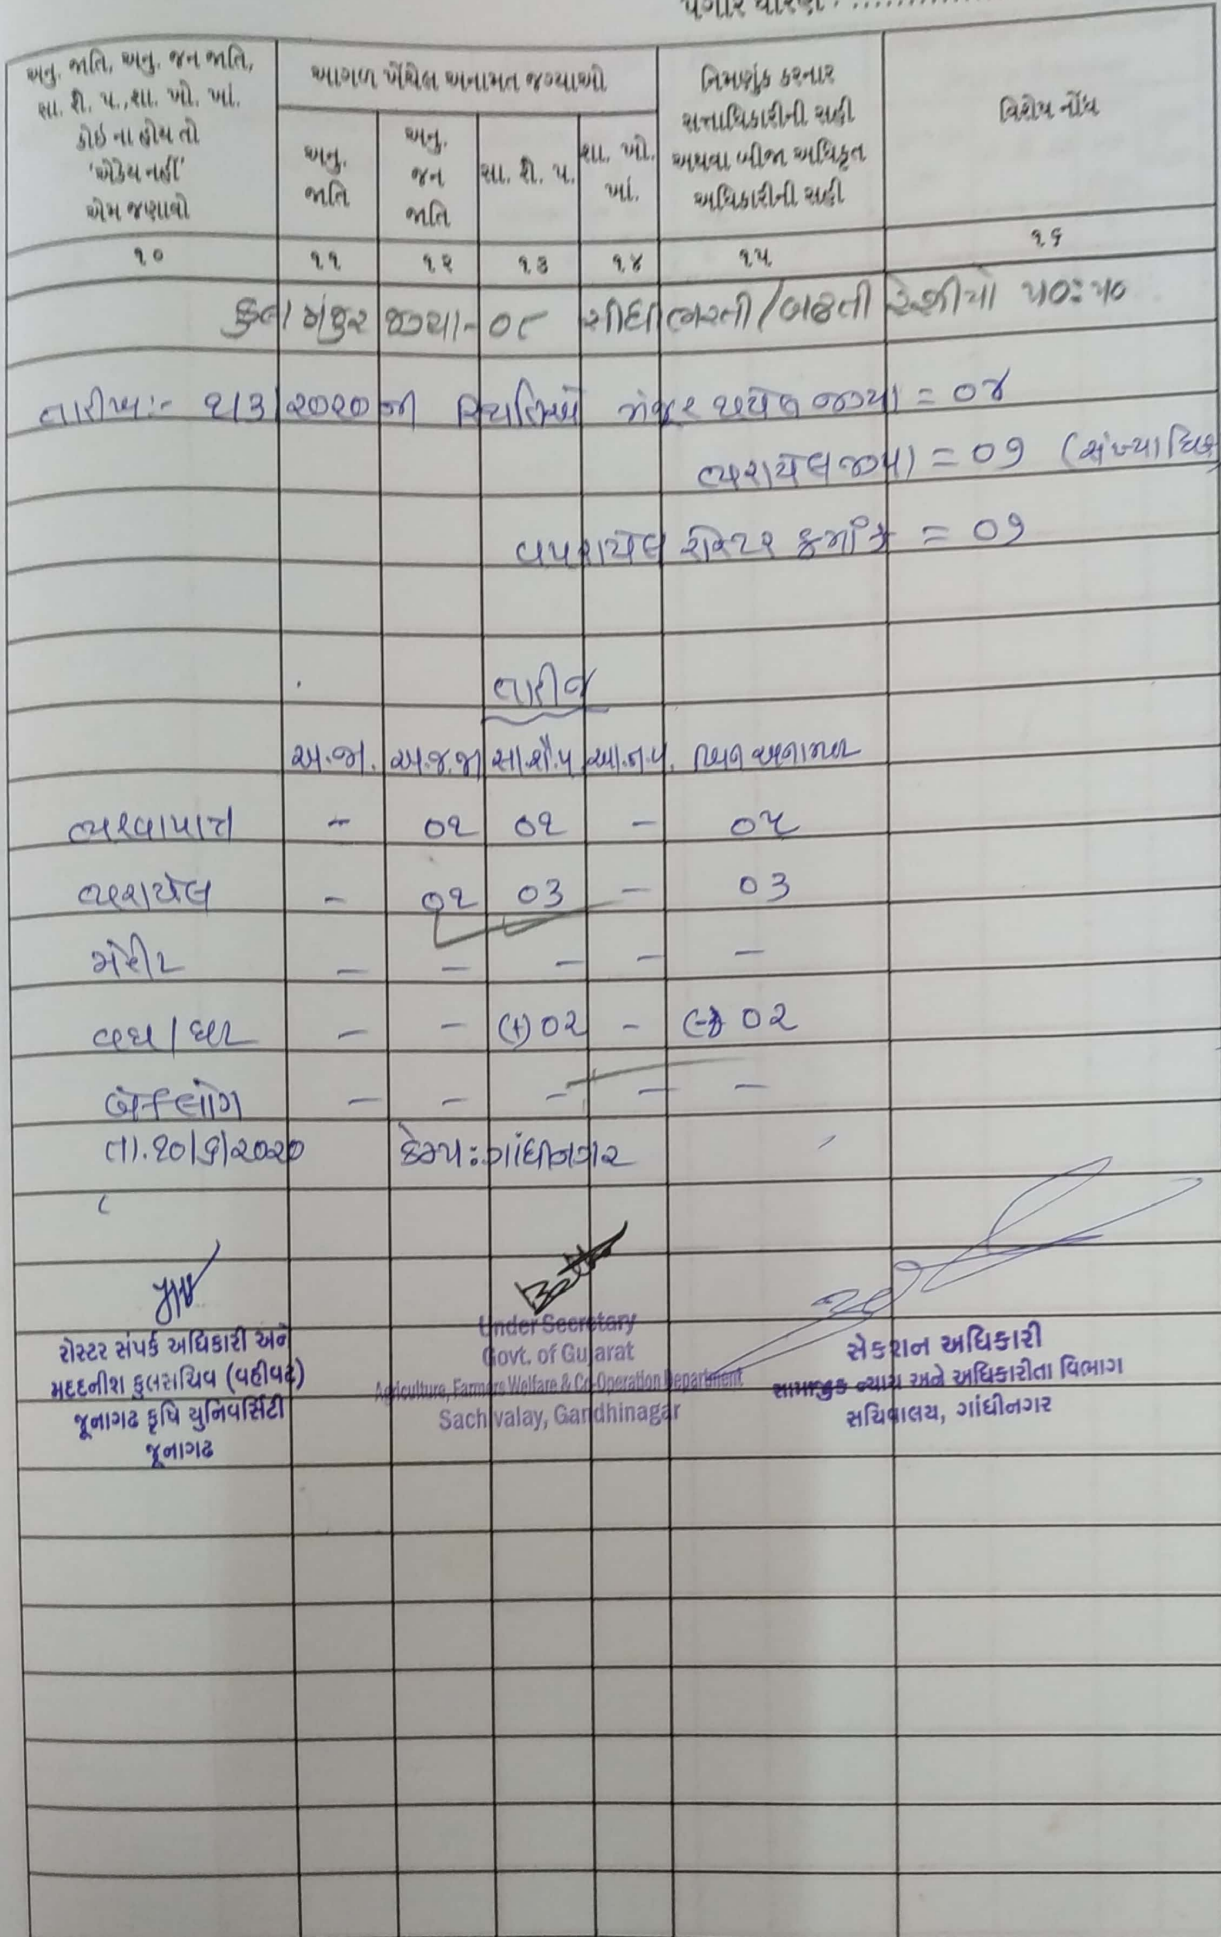 પગાર ધોરણ :
અનુ. જાતિ, અનુ. જન જાતિ,
સા. શૈ. પ., શા. ખો. ખાં.
કોઇ ના હોય તો
'એકેય નહીં'
એમ જણાવો
આગળ ખેંચેલ અનામત જગ્યાઓ
અનુ.
જાતિ
અનુ.
જન
જાતિ
સા. શૈ. પ.
શા. ખો.
ખાં.
નિમણૂંક કરનાર
સત્તાધિકારીની સહી
અથવા બીજા અધિકૃત
અધિકારીની સહી
વિશેષ નોંધ
૧૦ ૧૧ ૧૨ ૧૩ ૧૪ ૧૫ ૧૬
કુલ મંજુર જગ્યા-૦૮ સીધી ભરતી/બઢતી રેશીયો ૫૦:૫૦
તારીખ:- ૧/૩/૨૦૨૦ની સ્થિતિએ મંજૂર થયેલ જગ્યા = ૦૪
ભરાયેલ જગ્યા = ૦૭ (સંખ્યાધિક
વપરાયેલ રોસ્ટર ક્રમાંક = ૦૭
તારીજ
અ.જા. અ.જ.જા સા.શૈ.પ આ.ન.પ. બિન અનામત
ભરવાપાત્ર - ૦૧ ૦૧ - ૦૫
ભરાયેલ - ૦૧ ૦૩ - ૦૩
મેરીટ - - - - -
વધ/ઘટ - - (+)૦૨ - (-) ૦૨
બેકલોગ - - - - -
તા.૧૦/૬/૨૦૨૦ કેમ્પ:ગાંધીનગર
રોસ્ટર સંપર્ક અધિકારી અને
મદદનીશ કુલસચિવ (વહીવટ)
જૂનાગઢ કૃષિ યુનિવર્સિટી
જૂનાગઢ
Under Secretary
Govt. of Gujarat
Agriculture, Farmers Welfare & Co-Operation Department
Sachivalay, Gandhinagar
સેકશન અધિકારી
સામાજીક ન્યાય અને અધિકારીતા વિભાગ
સચિવાલય, ગાંધીનગર